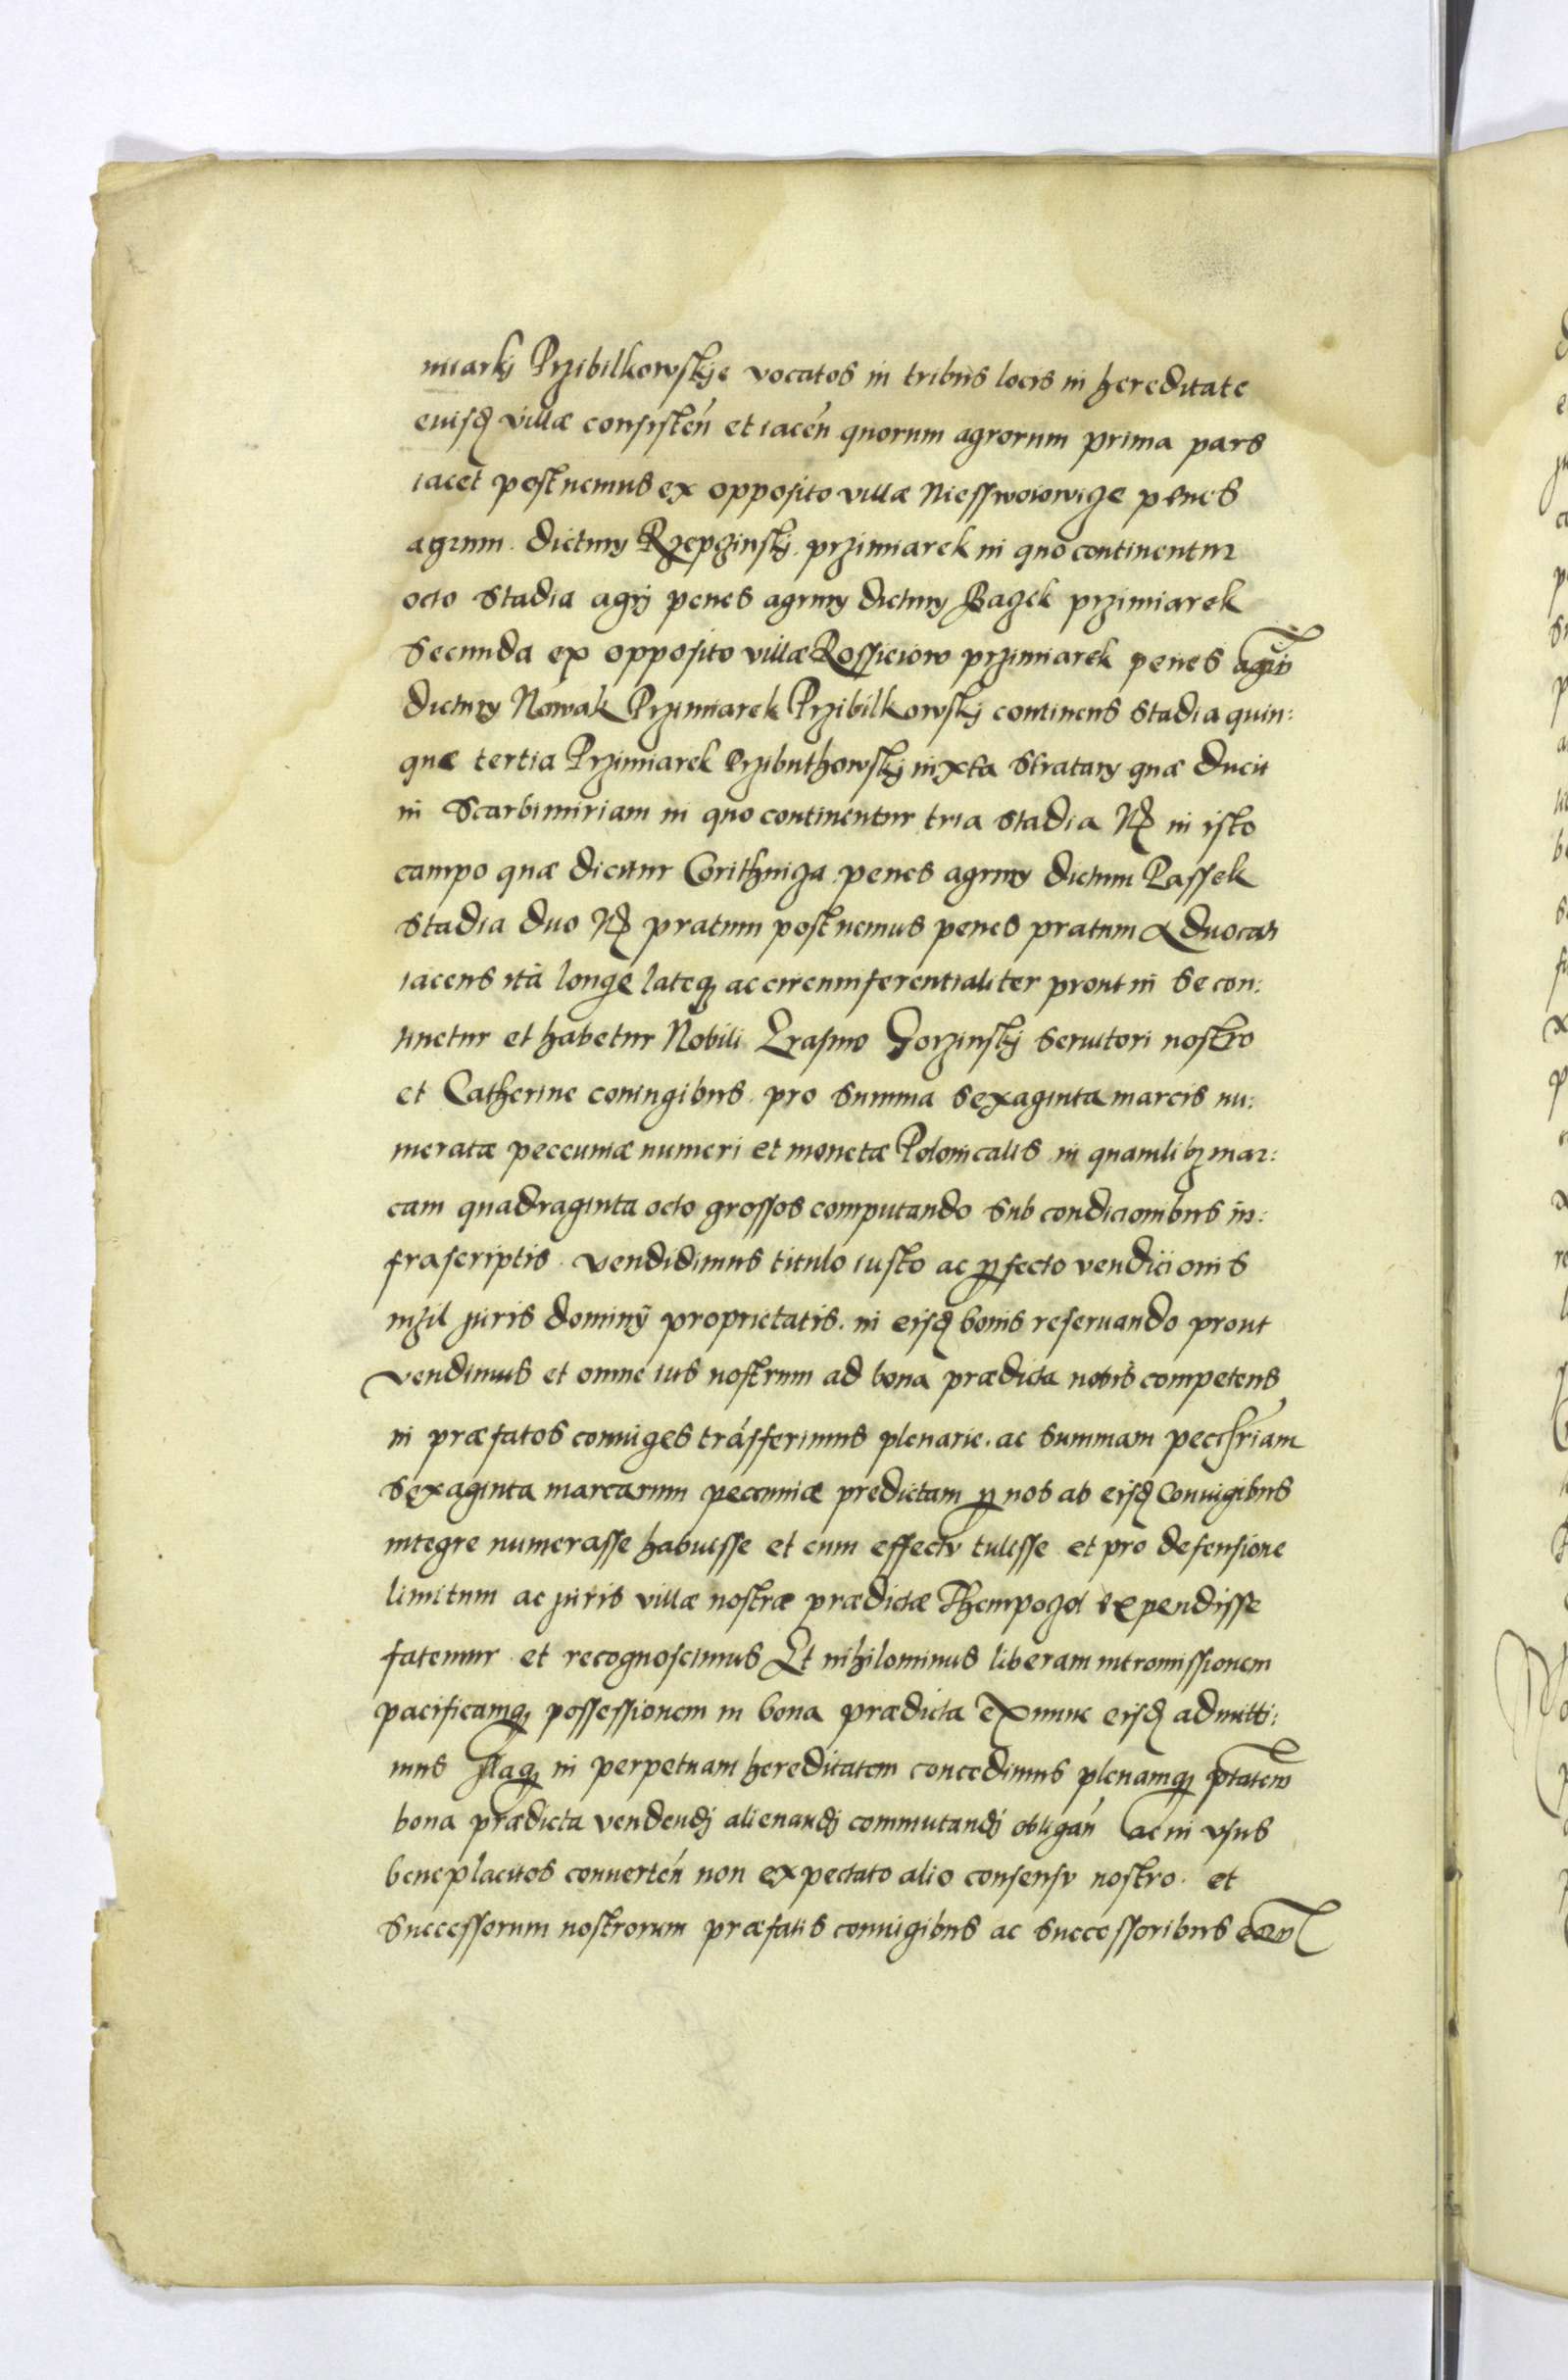 miarkj Przibilkowskye vocatos in tribus locis in hereditate
euisꝗ villæ consisten̄ et iacen̄ quorum agrorum prima pars
iacet post nemus ex opposito villæ Niesswoiowize penes
agrum dictum Rzepzinskj przimiarek in quo continentur
octo stadia agrj penes agrum dictum Bazek przimiarek
Secunda ex opposito villæ Rossieiow przimiarek penes agrū
dictum Nowak Przimiarek Przibilkowskj continens stadia quin:
que tertia Przimiarek Przibuthowskj iuxta stratam quæ ducit
in Scarbimiriam in quo continentur tria stadia Itꝫ in isto
campo quæ dicitur Corithniza penes agrum dictum Passek
stadia duo Itꝫ pratum post nemus penes pratum Aduocati
iacens ità longe lateqꝫ ac circumferentialiter prout in se con:
tinetur et habetur Nobili Erasmo Gorzinskj seruitori nostro
et Catherine coniugibus pro summa sexaginta marcis nu:
meratæ peccuniæ numeri et monetæ Polonicalis in quamlibꝫ mar:
cam quadraginta octo grossos computando sub condicionibus in:
frascriptis vendidimus titulo iusto ac ꝑfecto vendicionis
nihil juris dominij proprietatis in eisꝗ bonis reseruando prout
vendimus et omne ius nostrum ad bona prædicta nobis competens
in præfatos coniuges trāsferimus plenarie ac summam pecūriam
sexaginta marcarum pecuniæ predictam ꝑ nos ab eisꝗ Coniugibus
integre numerasse habuisse et cum effectv tulisse et pro defensione
limitum ac juris villæ nostræ prædictæ Thempozol expendisse
fatemur et recognoscimus Et nihilominus liberam intromissionem
pacificamqꝫ possessionem in bona prædicta ex nunc eisꝗ admitti:
mus Illaqꝫ in perpetuam hereditatem concedimus plenamqꝫ ptatem̄
bona prædicta vendendj alienandj commutandj obligan̄ ac in vsus
beneplacitos conuerten̄ non expectato alio consensv nostro et
successorum nostrorum præfatis coniugibus ac successoribus eorū